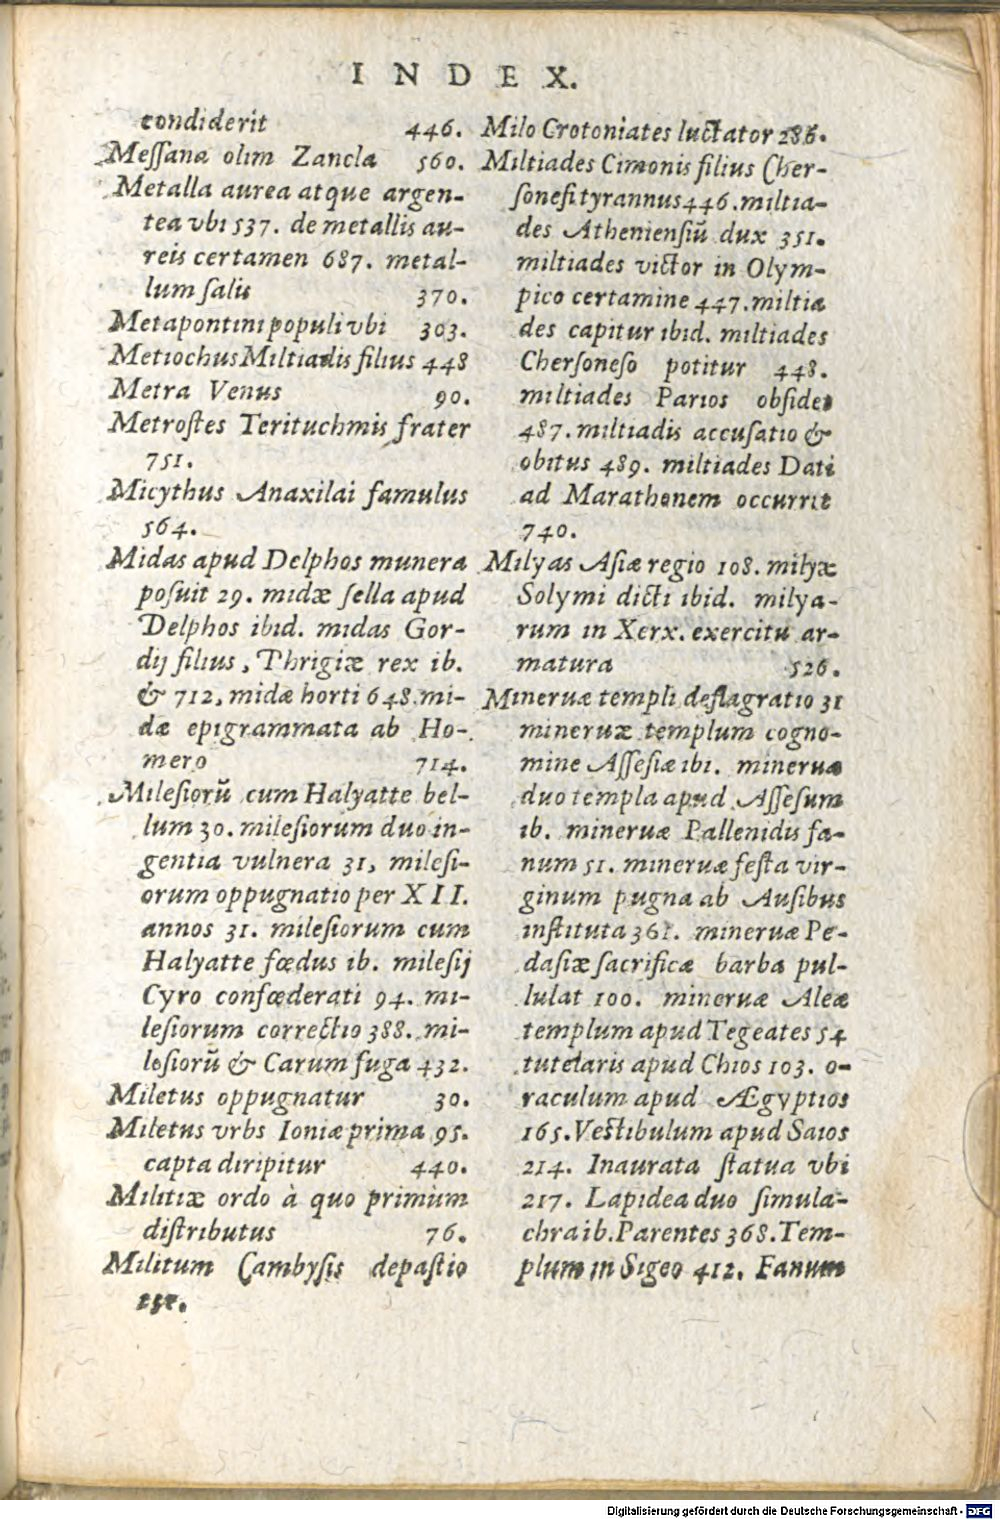 INDEX.
condiderit 446.
Meſſana olim Zancla 560.
Metalla aurea atque argen-
tea vbi 537. de metallis au-
reis certamen 687. metal-
lum ſalis 370.
Metapontini populi vbi 303.
Metiochus Miltiadis filius 448
Metra Venus 90.
Metroſtes Terituchmis frater
751.
Micythus Anaxilai famulus
564.
Midas apud Delphos munera
poſuit 29. midæ ſella apud
Delphos ibid. midas Gor-
dij filius, Thrigiæ rex ib.
& 712, midæ horti 648. mi-
dæ epigrammata ab Ho-
mero 714.
Mileſiorũ cum Halyatte bel-
lum 30. mileſiorum duo in-
gentia vulnera 31, mileſi-
orum oppugnatio per XII.
annos 31. mileſiorum cum
Halyatte fœdus ib. mileſij
Cyro confœderati 94. mi-
leſiorum correctio 388. mi-
leſiorũ & Carum fuga 432.
Miletus oppugnatur 30.
Miletus vrbs Ioniæ prima 95.
capta diripitur 440.
Militiæ ordo à quo primùm
diſtributus 76.
Militum Cambyſis depaſtio
Milo Crotoniates luctator 286.
Miltiades Cimonis filius Cher-
ſoneſi tyrannus 446. miltia-
des Athenienſiũ dux 351.
miltiades victor in Olym-
pico certamine 447. miltia
des capitur ibid. miltiades
Cherſoneſo potitur 448.
miltiades Parios obſides
487. miltiadis accuſatio &
obitus 489. miltiades Dati
ad Marathonem occurrit
740.
Milyas Aſiæ regio 108. milyæ
Solymi dicti ibid. milya-
rum in Xerx. exercitu ar-
matura 526.
Mineruæ templi deflagratio 31
mineruæ templum cogno-
mine Aſſeſiæ ibi. mineruæ
duo templa apud Aſſeſum
ib. mineruæ Pallenidis fa-
num 51. mineruæ feſta vir-
ginum pugna ab Auſibus
inſtituta 361. mineruæ Pe-
daſiæ ſacrificæ barba pul-
lulat 100. mineruæ Aleæ
templum apud Tegeates 54
tutelaris apud Chios 103. o-
raculum apud Ægyptios
165. Veſtibulum apud Saios
214. Inaurata ſtatua vbi
217. Lapidea duo ſimula-
chra ib. Parentes 368. Tem-
plum in Sigeo 412. Fanum
Digitalisierung gefördert durch die Deutsche Forschungsgemeinschaft - DFG